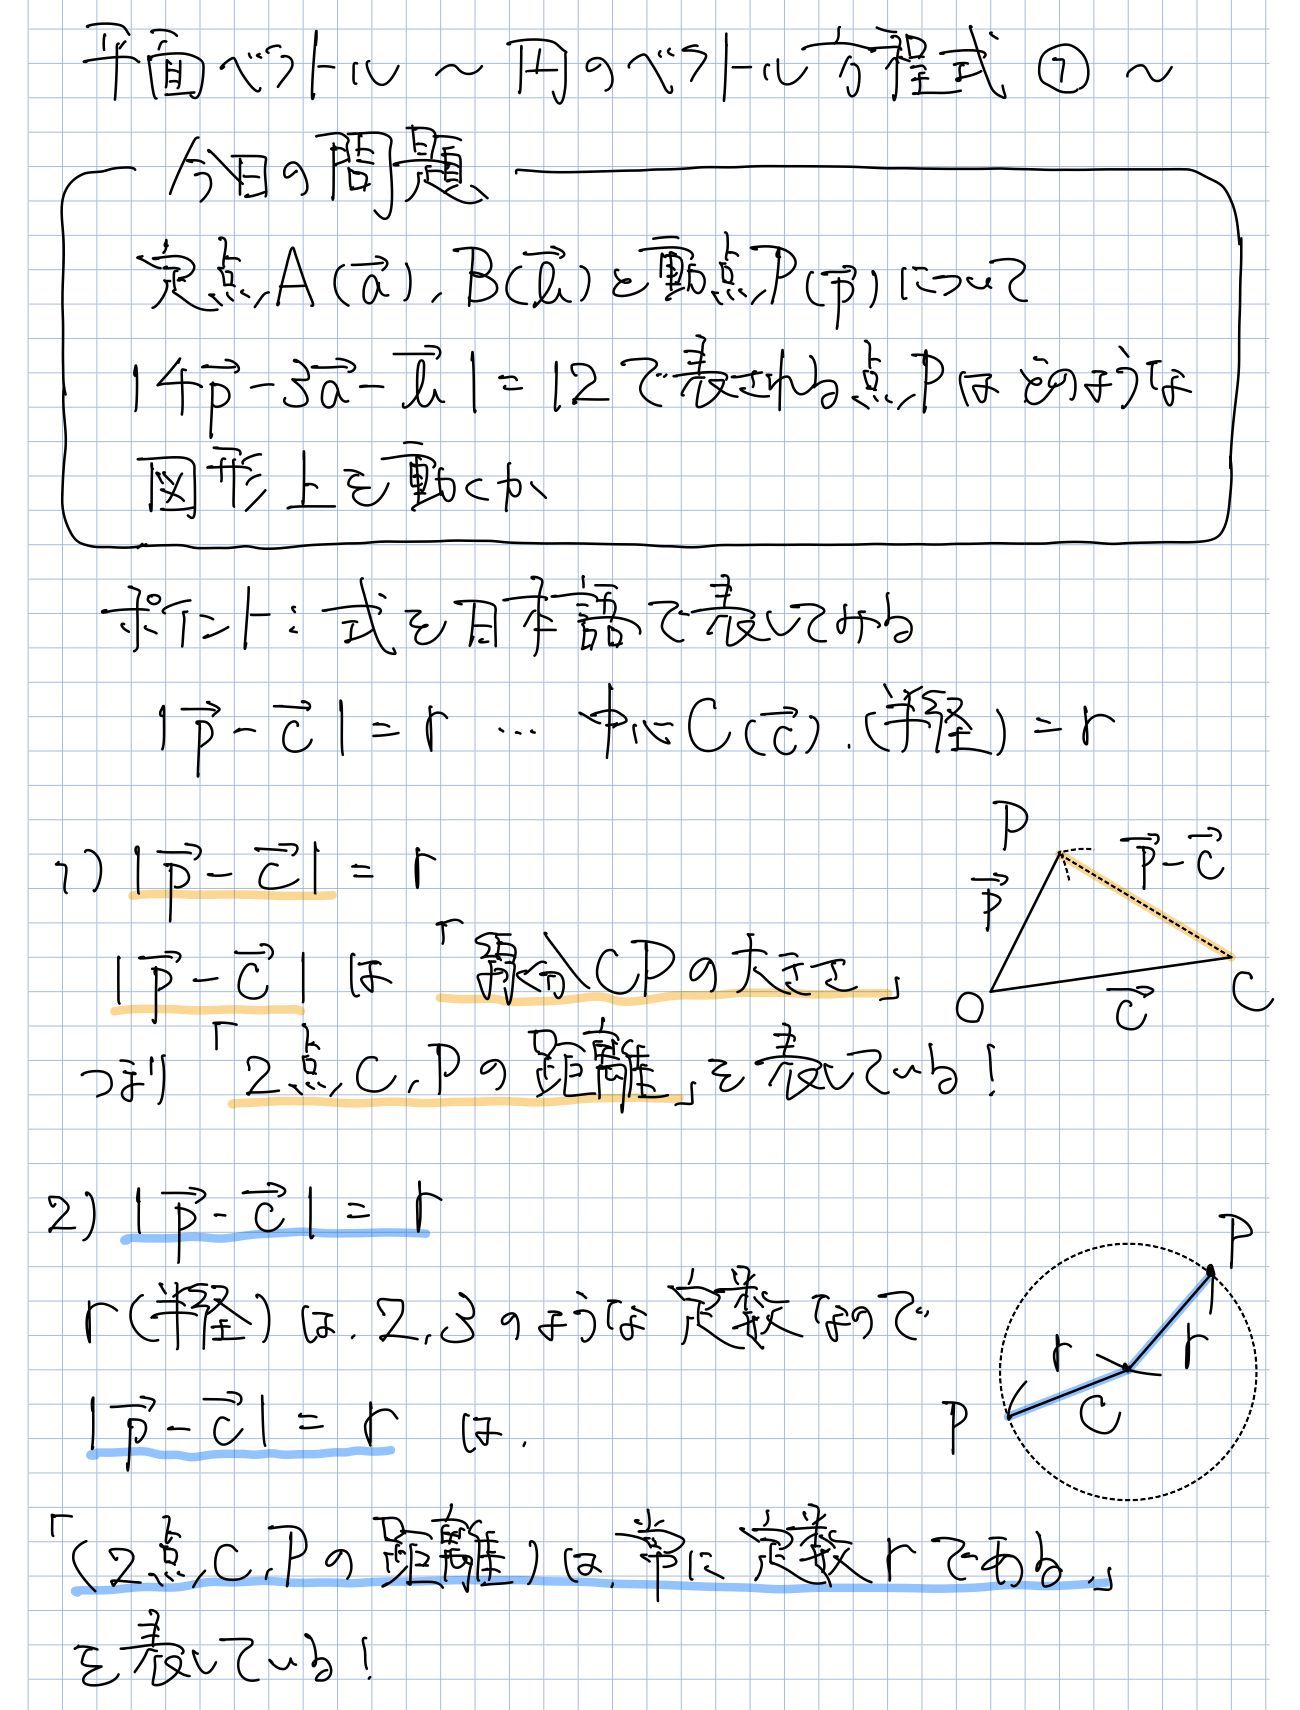 平面ベクトル ～ 円のベクトル方程式 ① ～
今日の問題
定点A(a→), B(b→)と動点P(p→)について
|4p→-3a→-b→|=12で表される点Pはどのような
図形上を動くか
ポイント:式を日本語で表してみる
|p→-c→|=r … 中心C(c→), (半径)=r
1) |p→-c→| = r
|p→-c→| は 「線分CPの大きさ」
つまり 「2点C,Pの距離」を表している!
P
p→
p→-c→
O
c→
C
2) |p→-c→| = r
r(半径)は,2,3のような定数なので
|p→-c→| = r は,
「(2点C,Pの距離)は,常に定数rである」
を表している!
P
r
r
P
C